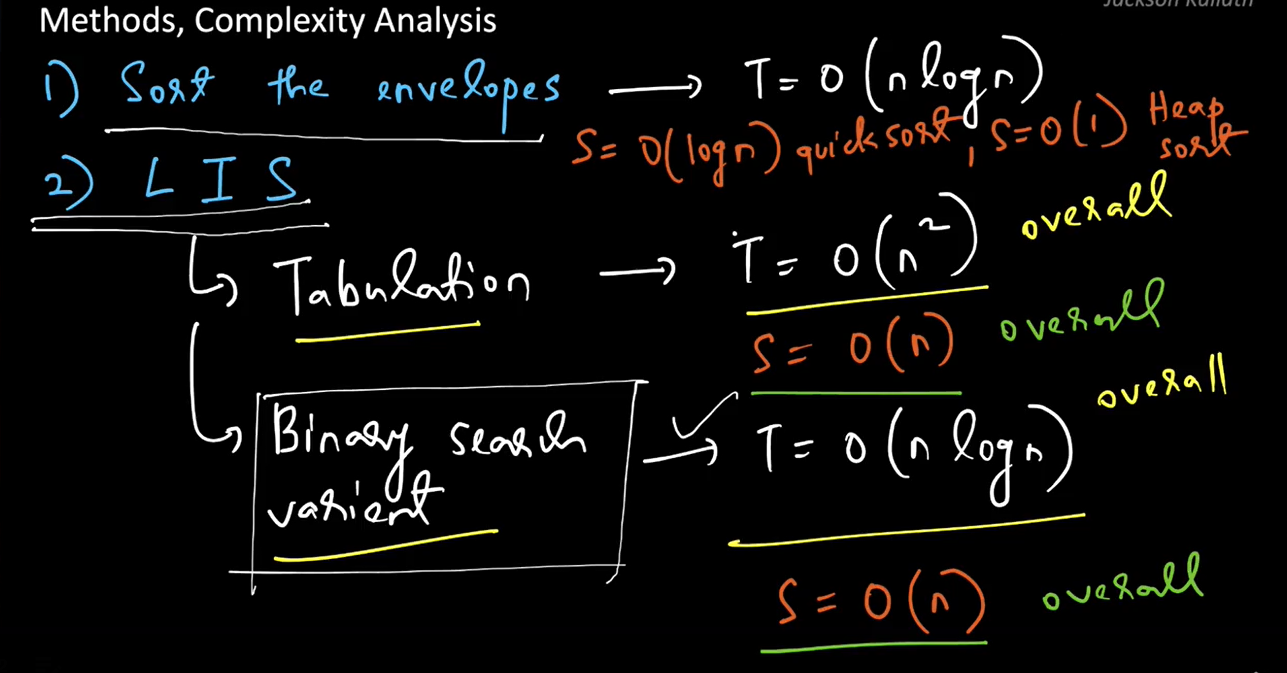 Methods, Complexity Analysis
1) Sort the envelopes → T = O(n log n)
S = O(log n) quick sort, S = O(1) Heap sort
2) L I S
Tabulation → T = O(n²) overall
S = O(n) overall
Binary search varient → T = O(n log n) overall
S = O(n) overall